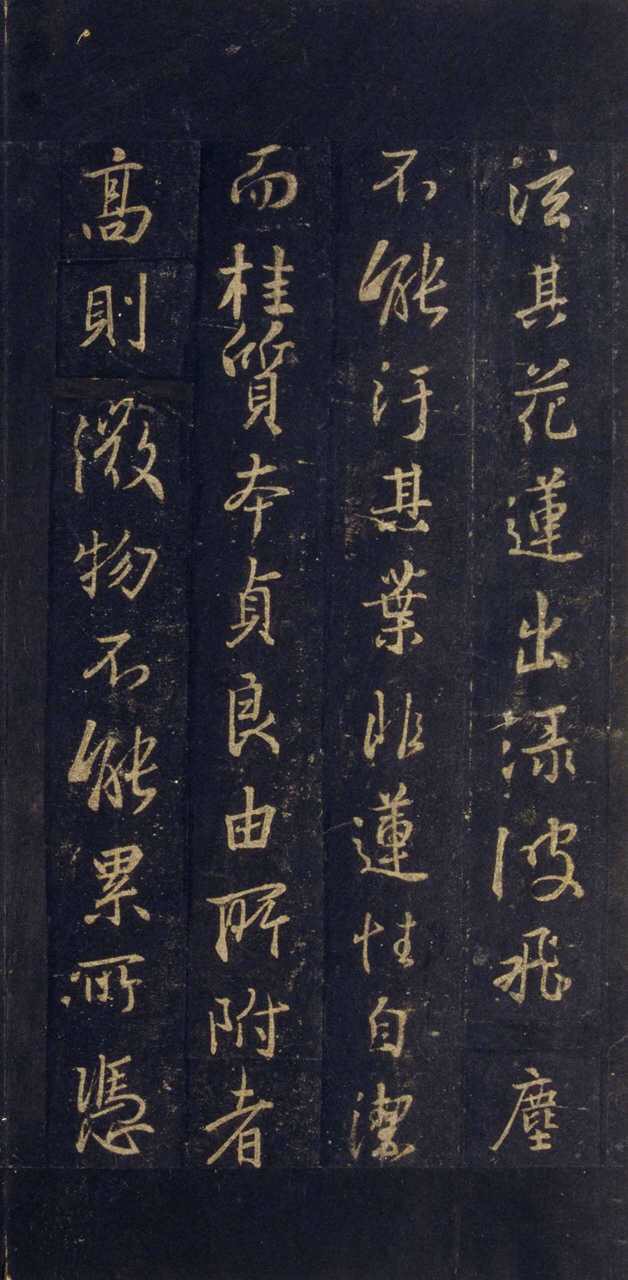 泫其花蓮出淥波飛塵
不能汙其葉非蓮性自潔
而桂質本貞良由所附者
高則微物不能累所憑